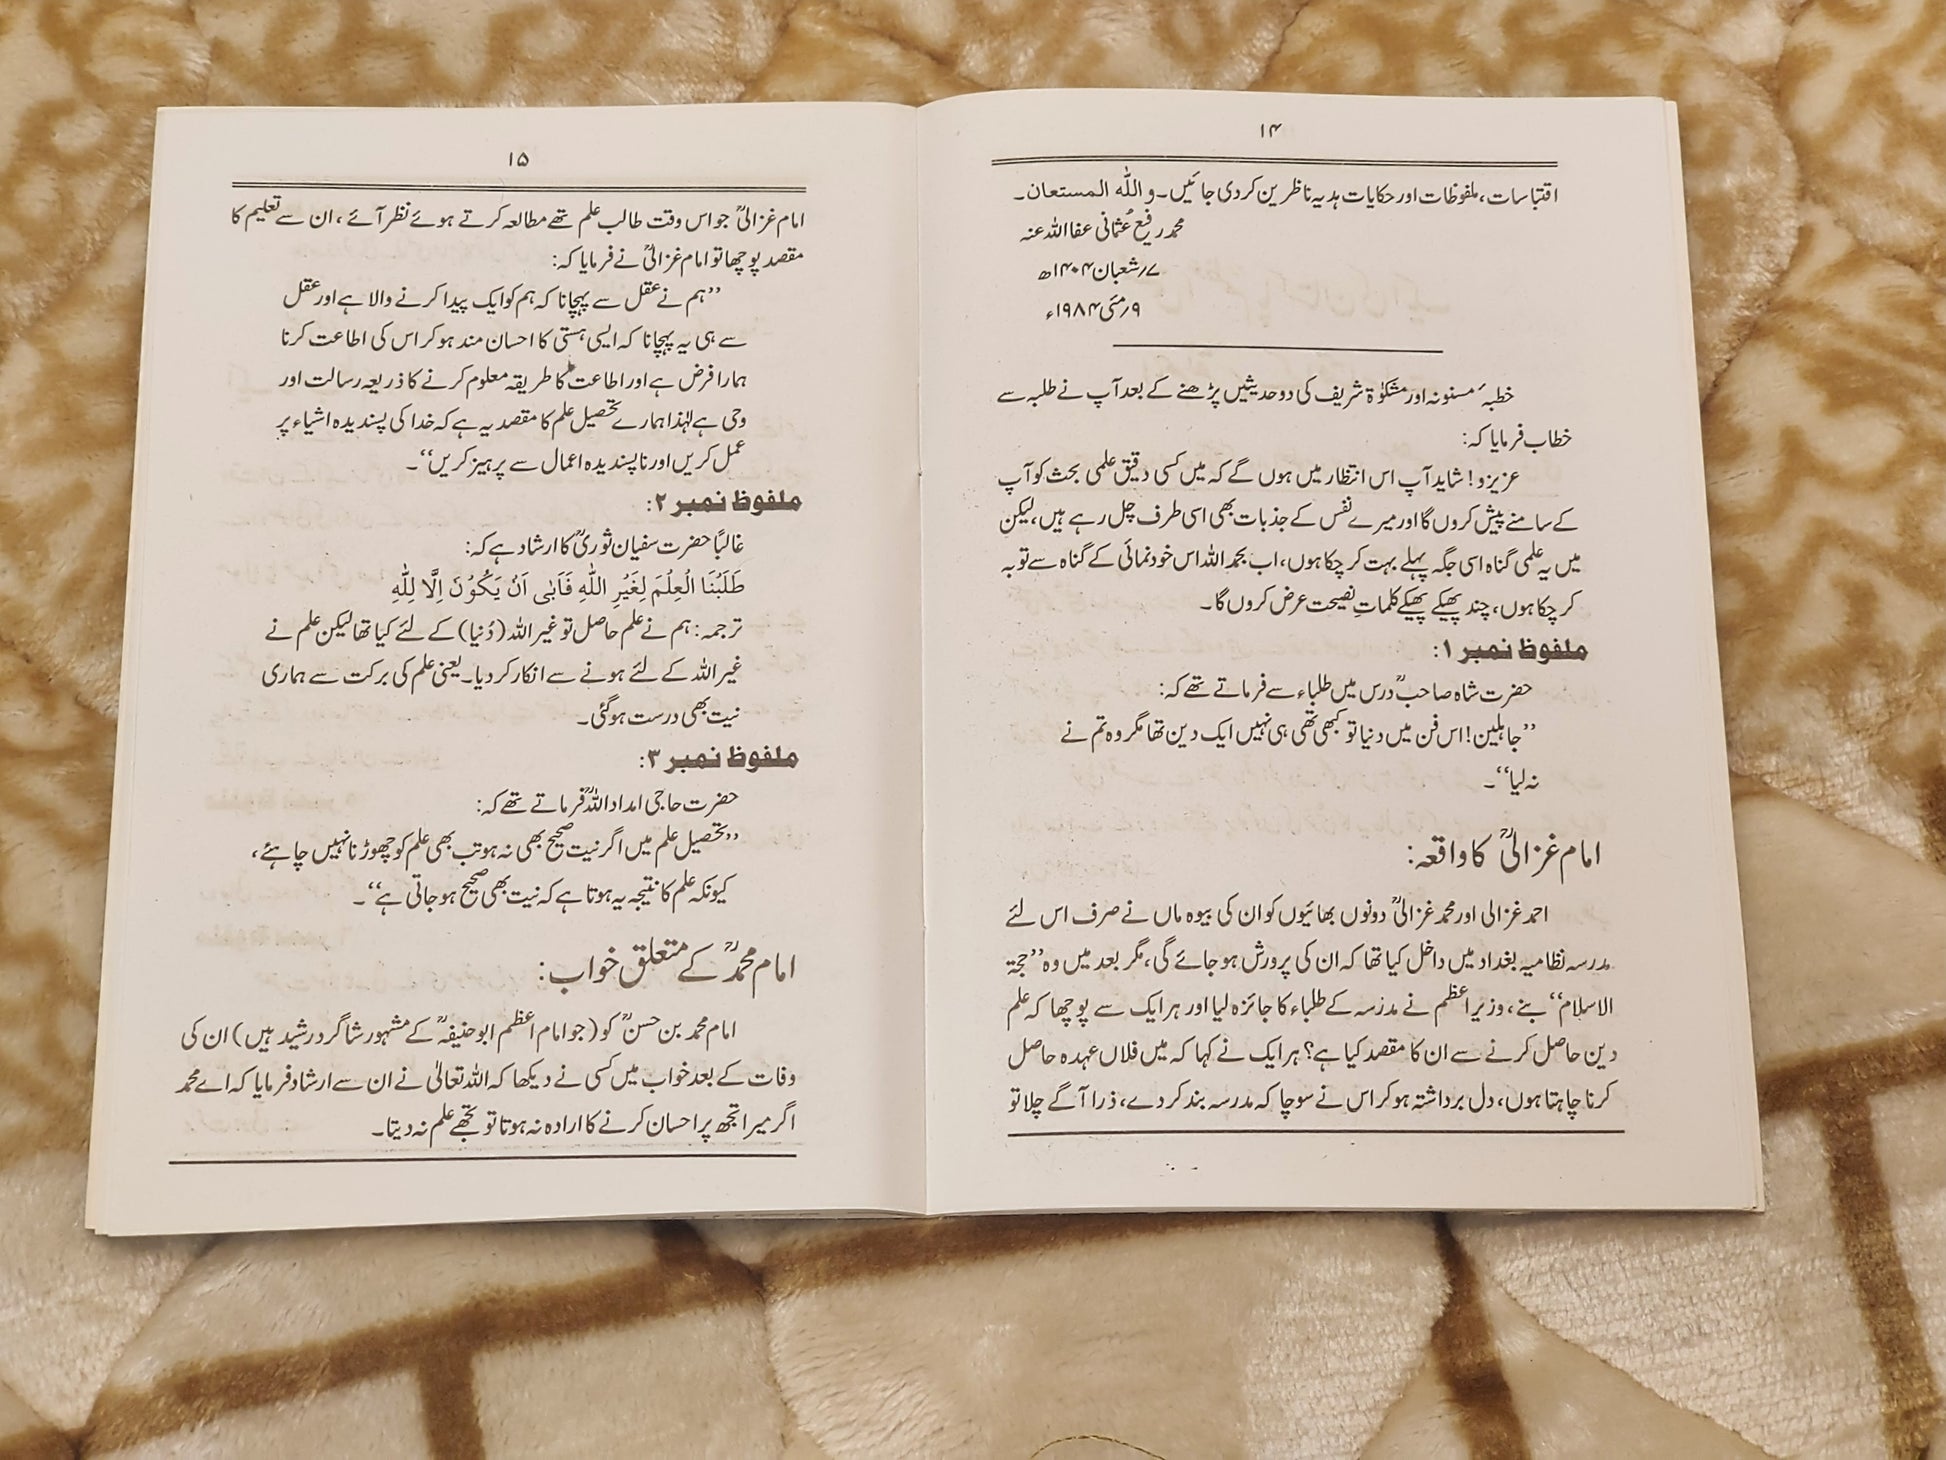 ۱۴
اقتباسات، ملفوظات اور حکایات ہدیہ ناظرین کردی جائیں۔ واللہ المستعان۔
محمد رفیع عثمانی عفا اللہ عنہ
۷؍شعبان ۱۴۰۴ھ
۹؍مئی ۱۹۸۴ء
خطبہٴ مسنونہ اور مشکوٰۃ شریف کی دو حدیثیں پڑھنے کے بعد آپ نے طلبہ سے
خطاب فرمایا کہ:
عزیزو! شاید آپ اس انتظار میں ہوں گے کہ میں کسی دقیق علمی بحث کو آپ
کے سامنے پیش کروں گا اور میرے نفس کے جذبات بھی اسی طرف چل رہے ہیں، لیکن
میں یہ علمی گناہ اسی جگہ پہلے بہت کر چکا ہوں، اب بحمد اللہ اس خودنمائی کے گناہ سے توبہ
کر چکا ہوں، چند پھیکے پھیکے کلماتِ نصیحت عرض کروں گا۔
ملفوظ نمبر ۱:
حضرت شاہ صاحبؒ درس میں طلباء سے فرماتے تھے کہ:
”جاہلین! اس فن میں دنیا تو کبھی تھی ہی نہیں ایک دین تھا مگر وہ تم نے
نہ لیا“۔
امام غزالیؒ کا واقعہ:
احمد غزالی اور محمد غزالیؒ دونوں بھائیوں کو ان کی بیوہ ماں نے صرف اس لئے
مدرسہ نظامیہ بغداد میں داخل کیا تھا کہ ان کی پرورش ہو جائے گی، مگر بعد میں وہ ”حجۃ
الاسلام“ بنے، وزیر اعظم نے مدرسہ کے طلباء کا جائزہ لیا اور ہر ایک سے پوچھا کہ علم
دین حاصل کرنے سے ان کا مقصد کیا ہے؟ ہر ایک نے کہا کہ میں فلاں عہدہ حاصل
کرنا چاہتا ہوں، دل برداشتہ ہو کر اس نے سوچا کہ مدرسہ بند کر دے، ذرا آگے چلا تو
۱۵
امام غزالیؒ جو اس وقت طالب علم تھے مطالعہ کرتے ہوئے نظر آئے، ان سے تعلیم کا
مقصد پوچھا تو امام غزالیؒ نے فرمایا کہ:
”ہم نے عقل سے پہچانا کہ ہم کو ایک پیدا کرنے والا ہے اور عقل
سے ہی یہ پہچانا کہ ایسی ہستی کا احسان مند ہو کر اس کی اطاعت کرنا
ہمارا فرض ہے اور اطاعت کا طریقہ معلوم کرنے کا ذریعہ رسالت اور
وحی ہے لہٰذا ہمارے تحصیل علم کا مقصد یہ ہے کہ خدا کی پسندیدہ اشیاء پر
عمل کریں اور ناپسندیدہ اعمال سے پرہیز کریں“۔
ملفوظ نمبر ۲:
غالبًا حضرت سفیان ثوریؒ کا ارشاد ہے کہ:
طَلَبْنَا الْعِلْمَ لِغَيْرِ اللّٰهِ فَاَبٰى اَنْ يَكُوْنَ اِلَّا لِلّٰهِ
ترجمہ: ہم نے علم حاصل تو غیر اللہ (دُنیا) کے لئے کیا تھا لیکن علم نے
غیر اللہ کے لئے ہونے سے انکار کر دیا۔ یعنی علم کی برکت سے ہماری
نیت بھی درست ہو گئی۔
ملفوظ نمبر ۳:
حضرت حاجی امداد اللہؒ فرماتے تھے کہ:
”تحصیل علم میں اگر نیت صحیح بھی نہ ہو تب بھی علم کو چھوڑنا نہیں چاہئے،
کیونکہ علم کا نتیجہ یہ ہوتا ہے کہ نیت بھی صحیح ہو جاتی ہے“۔
امام محمدؒ کے متعلق خواب:
امام محمد بن حسنؒ کو (جو امام اعظم ابوحنیفہؒ کے مشہور شاگرد رشید ہیں) ان کی
وفات کے بعد خواب میں کسی نے دیکھا کہ اللہ تعالیٰ نے ان سے ارشاد فرمایا کہ اے محمد
اگر میرا تجھ پر احسان کرنے کا ارادہ نہ ہوتا تو تجھے علم نہ دیتا۔